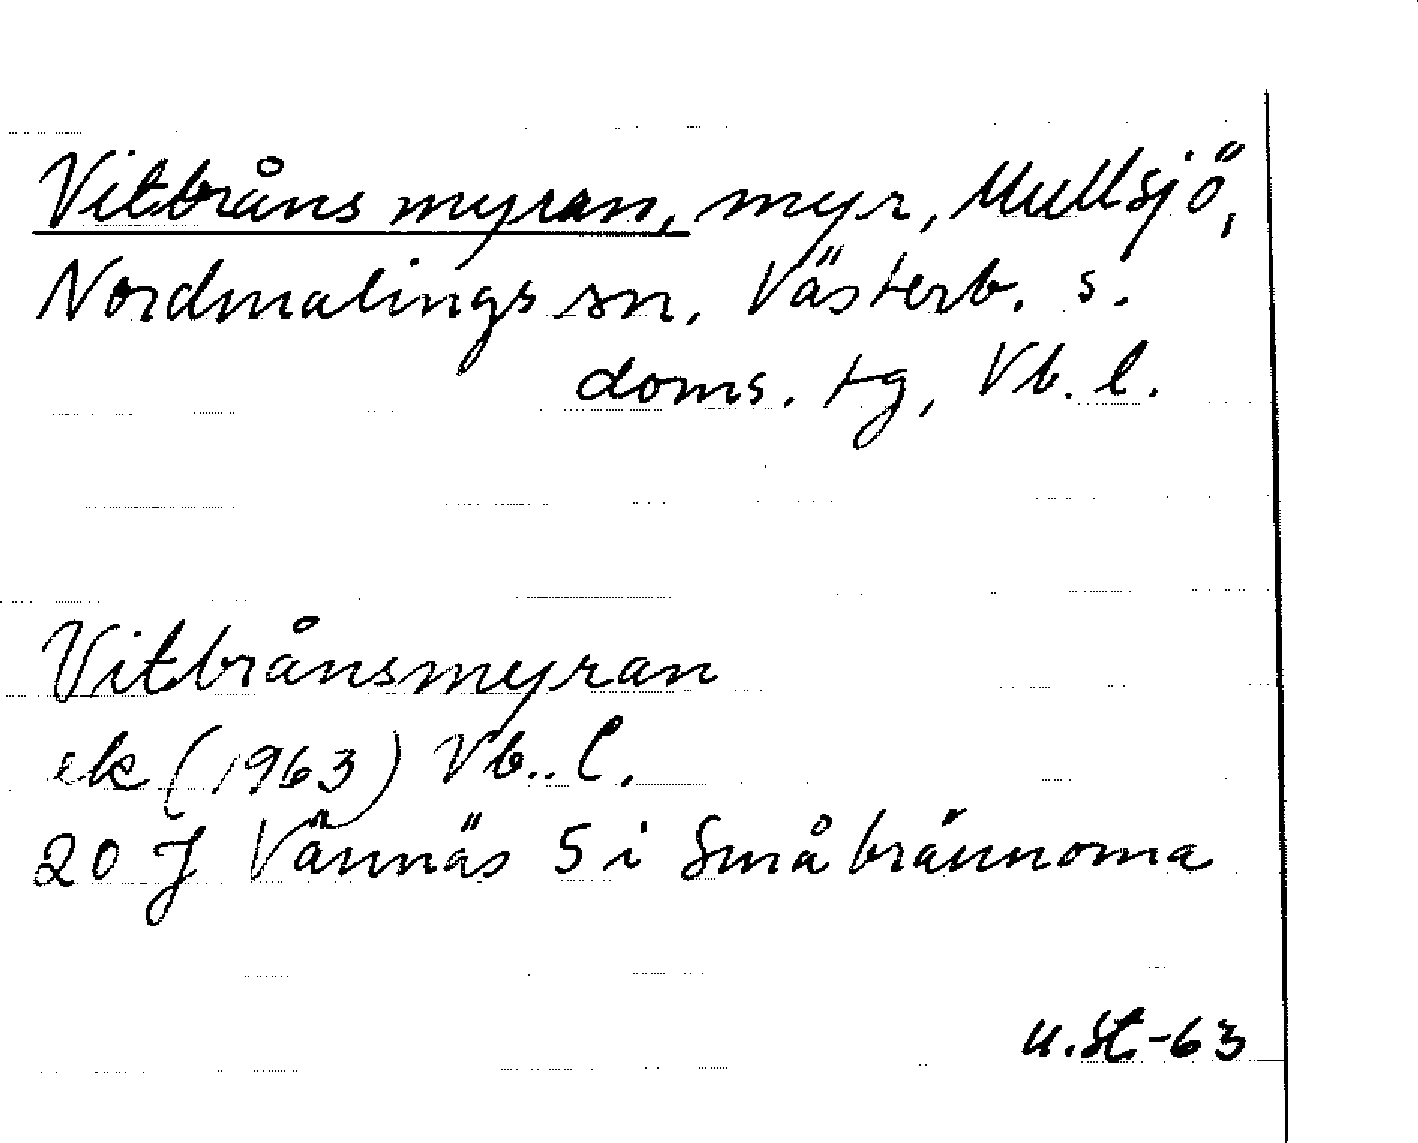 Vitbråns myran, myr, Mullsjö,
Nordmalings sn, Västerb. s.
doms. tg, Vb. l.
Vitbrånsmyran
ek (1963) Vb. l.
20 J Vännäs S i Småbrännorna
U. St-63